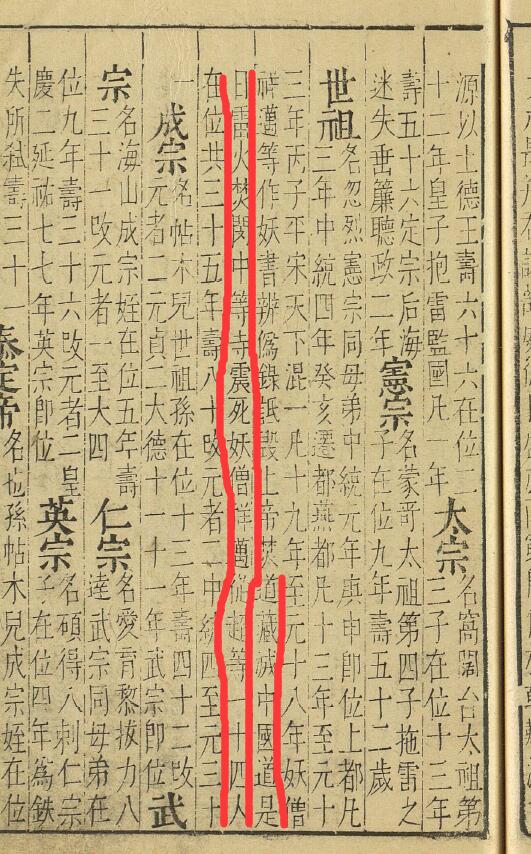 源以土德王壽六十六在位二
十二年皇子抱雷監國凡一年
太宗
名窩闊台太祖第
三子在位十三年
壽五十六定宗后海
迷失垂簾聽政二年
憲宗
名蒙哥太祖第四子拖雷之
子在位九年壽五十二歲
世祖
名忽烈憲宗同母弟中統元年庚申卽位上都凡
三年中統四年癸亥遷都燕都凡十三年至元十
三年丙子平宋天下混一凡十九年至元十八年妖僧
祥邁等作妖書辨僞錄詆毀上帝焚道藏滅中國道是
日雷火焚閩中等寺震死妖僧祥邁從超等一十四人
在位共三十五年壽八十攺元者二中統四至元三十
一
成宗
名帖木兒世祖孫在位十二年壽四十二攺
元者二元貞二大德十一十一年武宗卽位
武
宗
名海山成宗姪在位五年壽
三十一攺元者一至大四
仁宗
名愛育黎拔力八
達武宗同母弟在
位九年壽三十六攺元者二皇
慶二延祐七七年英宗卽位
英宗
名碩得八剌仁宗
子在位四年爲鉄
失所弒壽三十一
泰定帝
名也孫帖木兒成宗姪在位